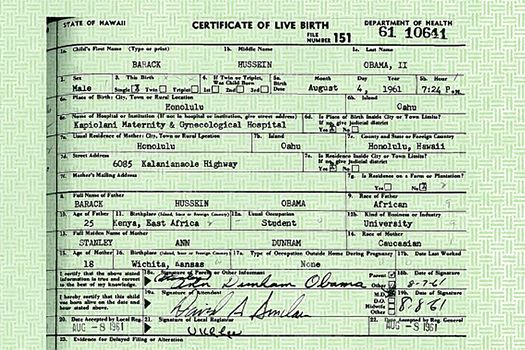 STATE OF HAWAII CERTIFICATE OF LIVE BIRTH DEPARTMENT OF HEALTH
FILE NUMBER 151 61 10641
1a. Child's First Name (Type or print) 1b. Middle Name 1c. Last Name
BARACK HUSSEIN OBAMA, II
2. Sex 3. This Birth 4. If Twin or Triplet, Was Child Born 5a. Birth Date Month Day Year 5b. Hour
Male Single X Twin Triplet 1st 2nd 3rd August 4, 1961 7:24 P.M.
6a. Place of Birth: City, Town or Rural Location 6b. Island
Honolulu Oahu
6c. Name of Hospital or Institution (If not in hospital or institution, give street address) 6d. Is Place of Birth Inside City or Town Limits? If no, give judicial district
Kapiolani Maternity & Gynecological Hospital Yes X No
7a. Usual Residence of Mother: City, Town or Rural Location 7b. Island 7c. County and State or Foreign Country
Honolulu Oahu Honolulu, Hawaii
7d. Street Address 7e. Is Residence Inside City or Town Limits? If no, give judicial district
6085 Kalanianaole Highway Yes X No
7f. Mother's Mailing Address 7g. Is Residence on a Farm or Plantation?
Yes No X
8. Full Name of Father 9. Race of Father
BARACK HUSSEIN OBAMA African
10. Age of Father 11. Birthplace (Island, State or Foreign Country) 12a. Usual Occupation 12b. Kind of Business or Industry
25 Kenya, East Africa Student University
13. Full Maiden Name of Mother 14. Race of Mother
STANLEY ANN DUNHAM Caucasian
15. Age of Mother 16. Birthplace (Island, State or Foreign Country) 17a. Type of Occupation Outside Home During Pregnancy 17b. Date Last Worked
18 Wichita, Kansas None
I certify that the above stated information is true and correct to the best of my knowledge. 18a. Signature of Parent or Other Informant Parent Other 18b. Date of Signature
Ann Dunham Obama 8-7-61
I hereby certify that this child was born alive on the date and hour stated above. 19a. Signature of Attendant M.D. D.O. Midwife Other 19b. Date of Signature
David A Sinclair 8-8-61
20. Date Accepted by Local Reg. 21. Signature of Local Registrar 22. Date Accepted by Reg. General
AUG -8 1961 AUG -8 1961
23. Evidence for Delayed Filing or Alteration